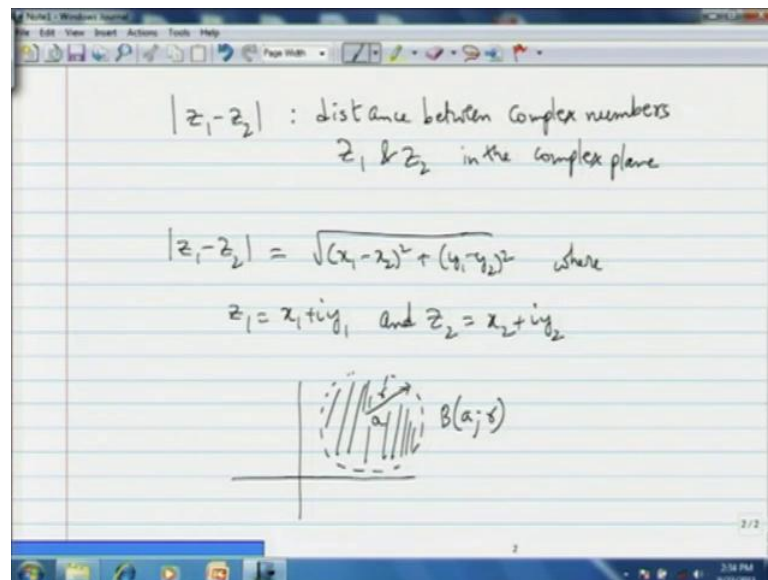 Note1 - Windows Journal
File Edit View Insert Actions Tools Help
Page Width
|z₁-z₂| : distance between complex numbers
z₁ & z₂ in the complex plane
|z₁-z₂| = √(x₁-x₂)² + (y₁-y₂)² where
z₁ = x₁+iy₁ and z₂ = x₂+iy₂
r
a
B(a;r)
2/2
2
2:34 PM